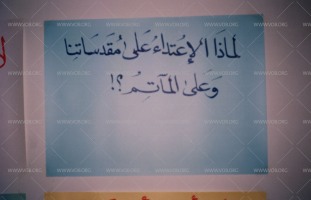 لماذَا الإعتداءُ عَلىٰ مُقدَسَاتِنا
وَعَلىٰ المآتِمُ ؟!